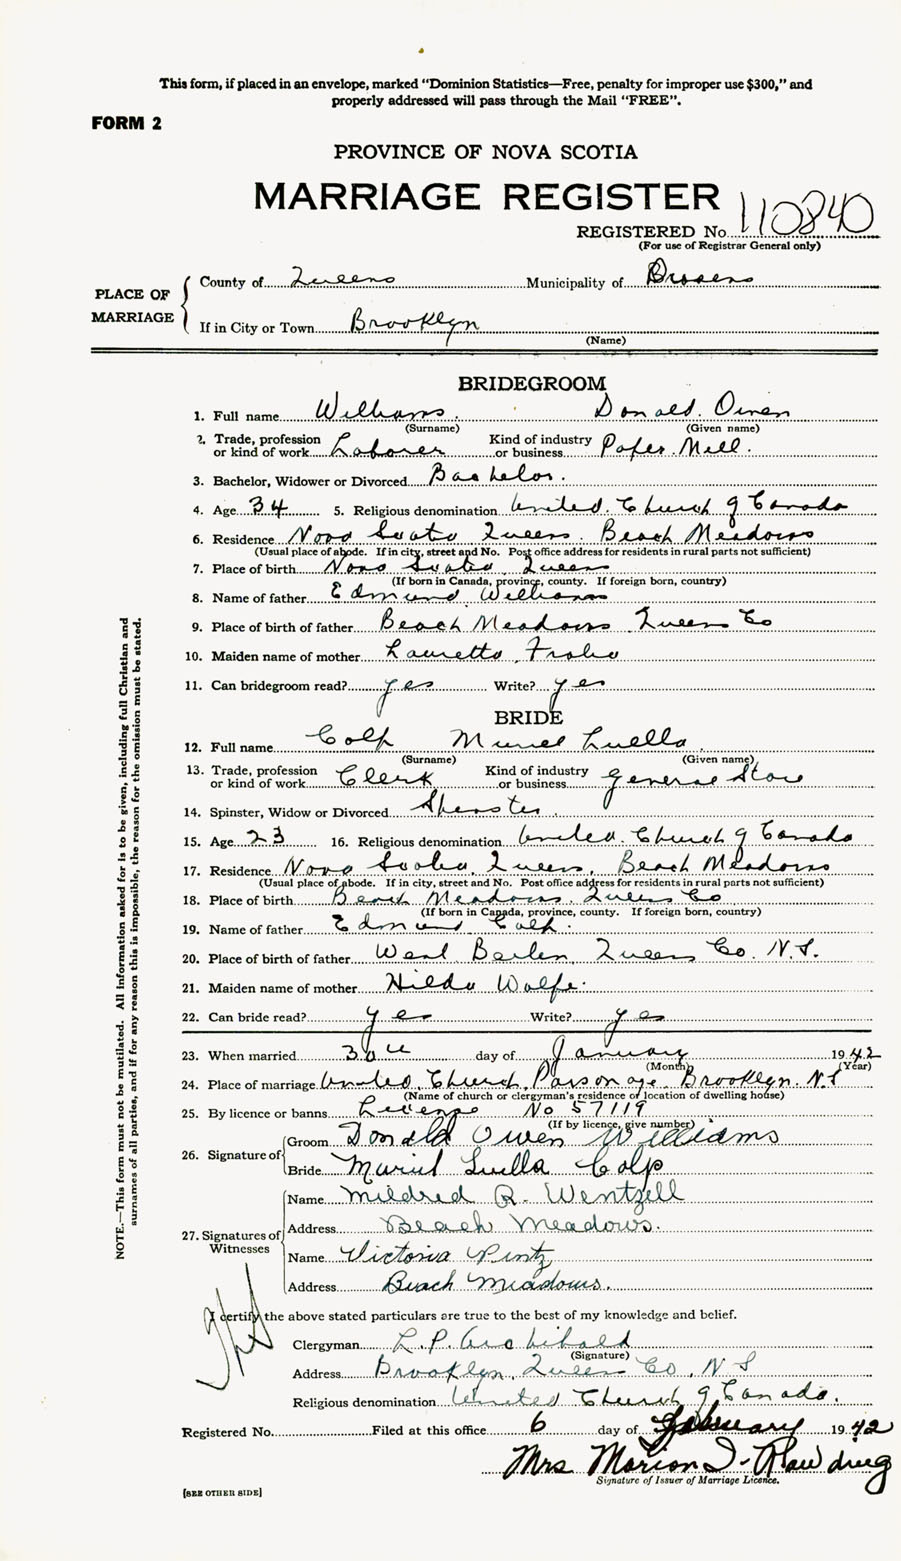 This form, if placed in an envelope, marked "Dominion Statistics—Free, penalty for improper use $300," and
properly addressed will pass through the Mail "FREE".
FORM 2
PROVINCE OF NOVA SCOTIA
MARRIAGE REGISTER
REGISTERED No. 110840
(For use of Registrar General only)
PLACE OF MARRIAGE
County of Queens Municipality of
If in City or Town Brooklyn
(Name)
BRIDEGROOM
1. Full name Williams. Donald Owen
(Surname) (Given name)
2. Trade, profession or kind of work Laborer Kind of industry or business Paper Mill.
3. Bachelor, Widower or Divorced Bachelor.
4. Age 34 5. Religious denomination United Church of Canada
6. Residence Nova Scotia Queens Beach Meadows
(Usual place of abode. If in city, street and No. Post office address for residents in rural parts not sufficient)
7. Place of birth Nova Scotia Queens
(If born in Canada, province, county. If foreign born, country)
8. Name of father Edmund Williams
9. Place of birth of father Beach Meadows Queens Co
10. Maiden name of mother Lauretta
11. Can bridegroom read? yes Write? yes
BRIDE
12. Full name Colp Muriel Luella
(Surname) (Given name)
13. Trade, profession or kind of work Clerk Kind of industry or business General Store
14. Spinster, Widow or Divorced Spinster
15. Age 23 16. Religious denomination United Church of Canada
17. Residence Nova Scotia, Queens, Beach Meadows
(Usual place of abode. If in city, street and No. Post office address for residents in rural parts not sufficient)
18. Place of birth Beach Meadows. Queens Co
(If born in Canada, province, county. If foreign born, country)
19. Name of father Edmund Colp.
20. Place of birth of father West Berlin, Queens Co. N.S.
21. Maiden name of mother Hilda Wolfe.
22. Can bride read? yes Write? yes
23. When married 30th day of January 1942
(Month) (Year)
24. Place of marriage United Church Parsonage Brooklyn. N.S
(Name of church or clergyman's residence or location of dwelling house)
25. By licence or banns License No 57119
(If by licence, give number)
26. Signature of
Groom Donald Owen Williams
Bride Muriel Luella Colp
27. Signatures of Witnesses
Name Mildred R. Wentzell
Address Beach Meadows.
Name Victoria Wentz
Address Beach Meadows.
I certify the above stated particulars are true to the best of my knowledge and belief.
Clergyman L.P. Archibald
(Signature)
Address Brooklyn, Queens Co, N S
Religious denomination United Church of Canada.
Registered No. Filed at this office 6 day of February 1942
Mrs Marion I. Rawding
Signature of Issuer of Marriage Licence.
[SEE OTHER SIDE]
NOTE.—This form must not be mutilated. All information asked for is to be given, including full Christian and
surnames of all parties, and if for any reason this is impossible, the reason for the omission must be stated.